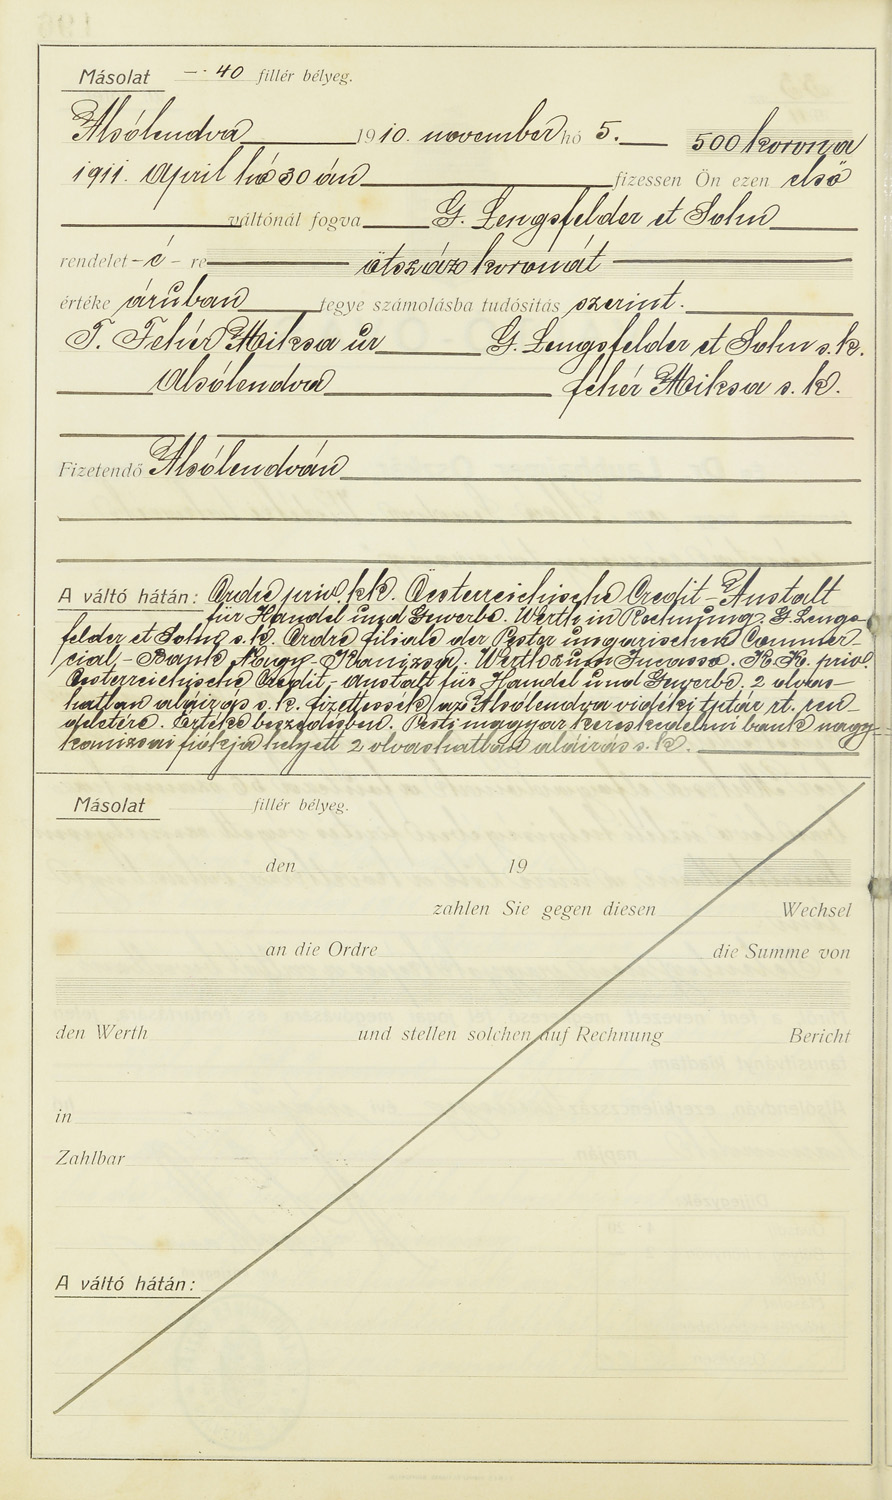 Másolat —·40 fillér bélyeg.
Alsólendva 1910. november hó 5. 500 korona
1911. April hó 30 án fizessen Ön ezen első
váltónál fogva G. Lengsfelder et Sohn
rendelet-é-re ötszáz koronát
értéke áruban tegye számolásba tudósitás szerint.
T. Fehér Miksa úr G. Lengsfelder et Sohn s. k.
Alsólendva fehér Miksa s. k.
Fizetendő Alsólendván
A váltó hátán: Ordre priv. kk. Oesterreichische Credit-Anstalt
für Handel und Gewerbe. Werth in Rechnung. G. Lengs-
felder et Sohn s. k. Ordre filiale der Pester ungarischen Commer
cial-Bank Nagy-Kanizsa. Werth zum Incasso. K. K. priv.
Oesterreichische Credit-Anstalt für Handel und Gewerbe. 2 olvas-
hatlan aláirás s. k. fizettessék az Alsólendva vidéki tptár rt. ren-
deletére. Értéke beszedésben. Pesti magyar kereskedelmi bank nagy-
kanizsai fiókja helyett 2 olvashatlan aláirás s. k.
Másolat fillér bélyeg.
den 19
zahlen Sie gegen diesen Wechsel
an die Ordre die Summe von
den Werth und stellen solchen auf Rechnung Bericht
in
Zahlbar
A váltó hátán: